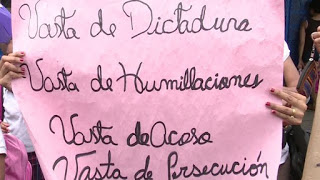 Vasta de Dictadura
Vasta de Humillaciones
Vasta de Acoso
Vasta de Persecución